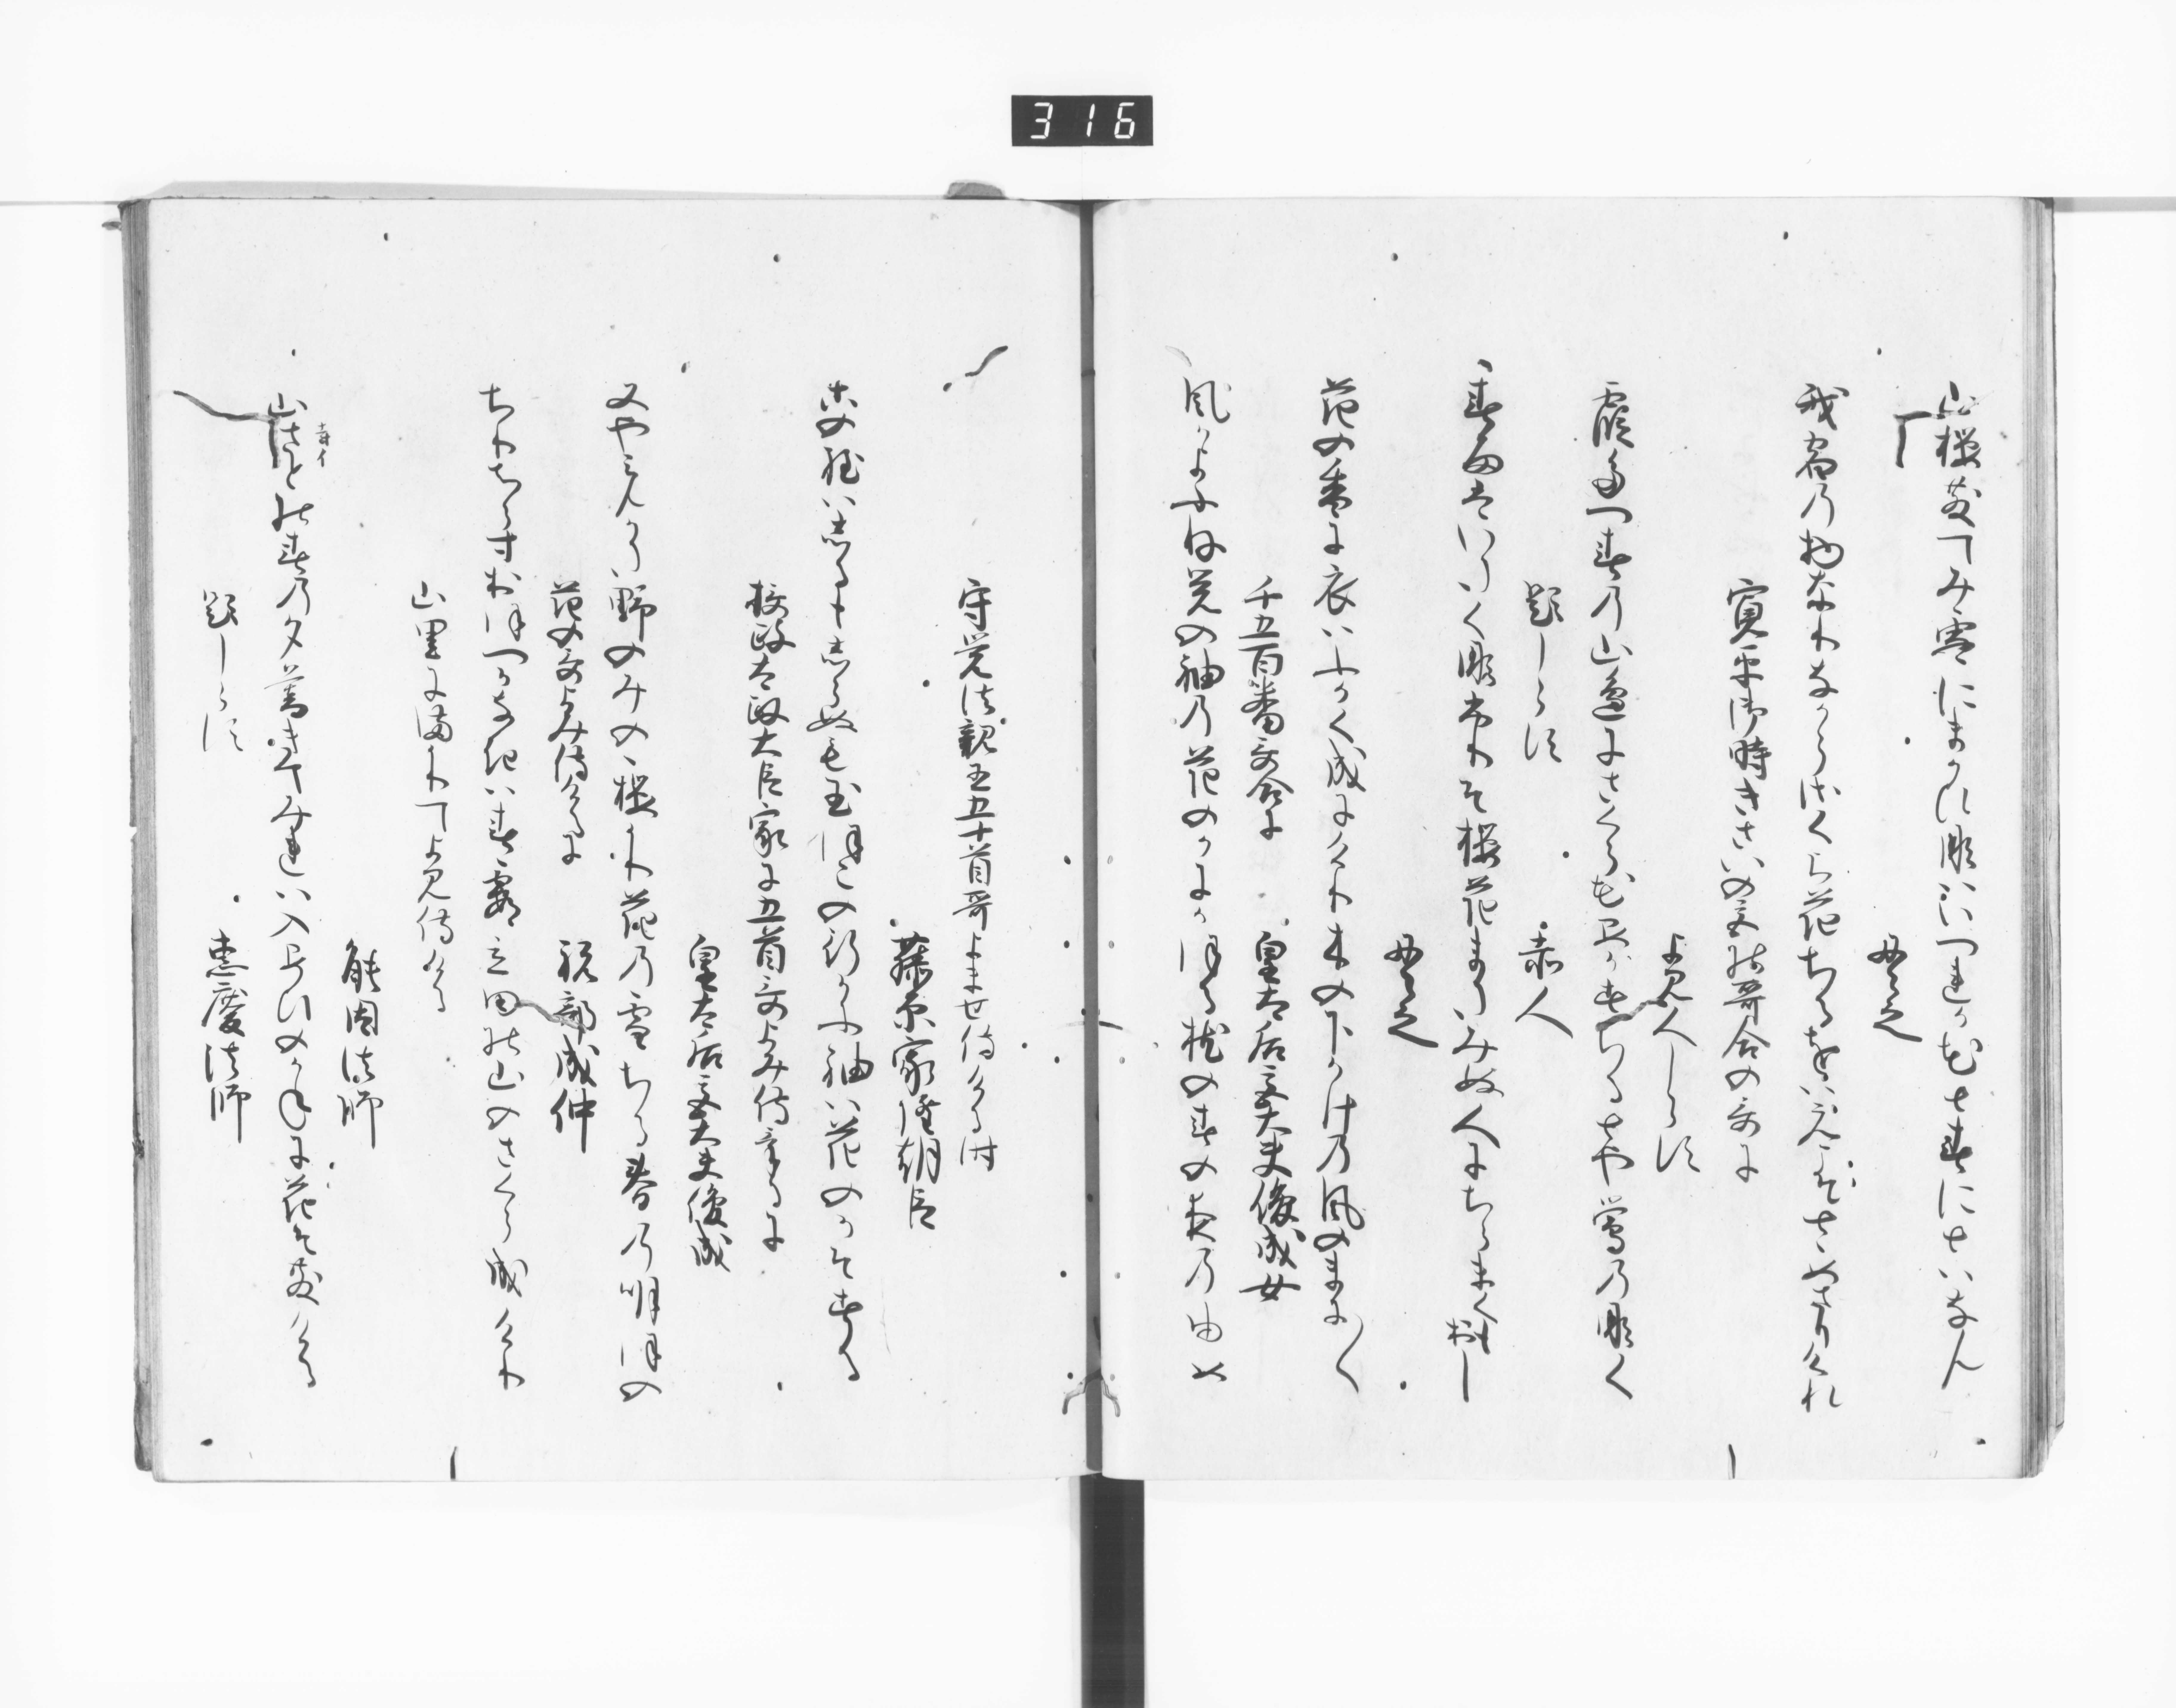 316
山桜散てみ雪にまかひなはいつれか花と春にとはなん
貫之
我宿の物なりなから桜花ちるをはえこそとゝめさりけれ
寛平御時きさいの宮の哥合の哥に
よみ人しらす
霞たつ春の山辺にさくら花あかすちるとや鶯の鳴く
題しらす
赤人
春雨はいたくなふりそ桜花またみぬ人にちらまくおし
貫之
花の香に衣はふかく成にけり木の下かけの風のまに〱
千五百番哥合に
皇太后宮大夫俊成女
風かよふね覚の袖の花のかにかほる枕の春の夜の夢
守覚法親王五十首哥よませ侍ける時
藤原家隆朝臣
この程はしるもしらぬも玉ほこの行かふ袖は花のかそする
摂政太政大臣家に五首哥よみ侍けるに
皇太后宮大夫俊成
又やみんかた野のみのゝ桜かり花の雪ちる春の明ほの
花の哥よみ侍けるに
祝部成仲
ちりちらすおほつかなきは春霞立田の山のさくら成けり
山里にまかりてよみ侍ける
能因法師
山里の春の夕暮きてみれは入あひのかねに花そ散ける
寺イ
題しらす
恵慶法師